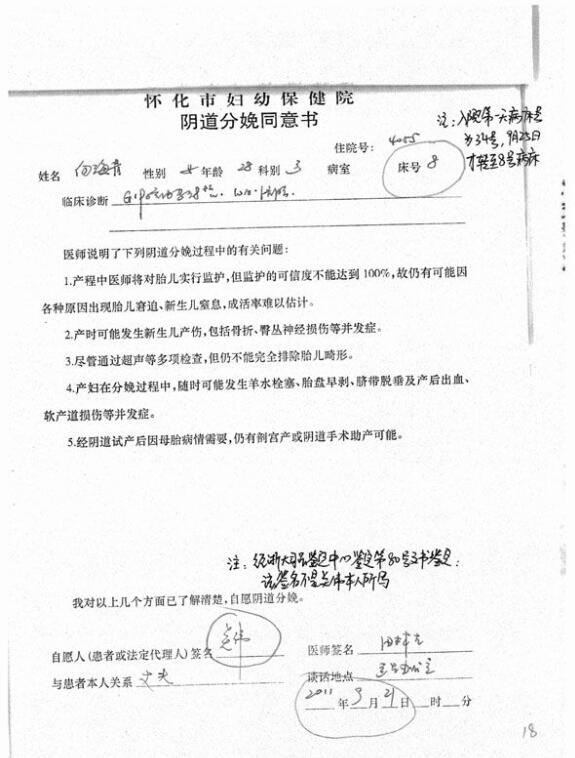 怀化市妇幼保健院
阴道分娩同意书
注:入院第一天病床号
为34号,9月25日
才转至8号病床
住院号: 4055
姓名 向海青 性别 女 年龄 28 科别 3 病室 床号 8
临床诊断
医师说明了下列阴道分娩过程中的有关问题:
1.产程中医师将对胎儿实行监护,但监护的可信度不能达到100%,故仍有可能因
各种原因出现胎儿窘迫、新生儿窒息,成活率难以估计。
2.产时可能发生新生儿产伤,包括骨折、臀丛神经损伤等并发症。
3.尽管通过超声等多项检查,但仍不能完全排除胎儿畸形。
4.产妇在分娩过程中,随时可能发生羊水栓塞、胎盘早剥、脐带脱垂及产后出血、
软产道损伤等并发症。
5.经阴道试产后因母胎病情需要,仍有剖宫产或阴道手术助产可能。
注:经浙大司法鉴定中心鉴定第80号文书鉴定:
该签名不是 本人所写
我对以上几个方面已了解清楚,自愿阴道分娩。
自愿人(患者或法定代理人)签名
医师签名
与患者本人关系 丈夫
谈话地点
2011年9月21日 时 分
18